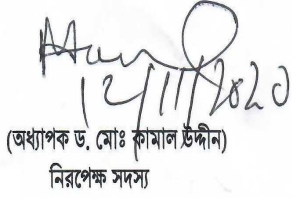 12/11/2020
(অধ্যাপক ড. মোঃ কামাল উদ্দীন)
নিরপেক্ষ সদস্য